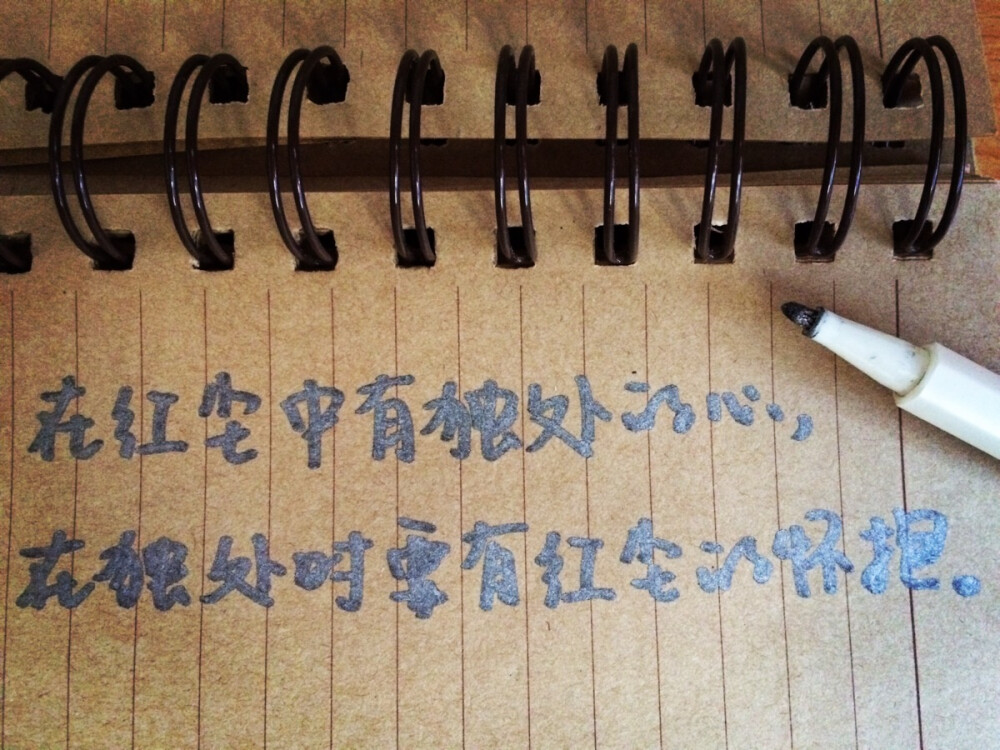 在红尘中有独处的心,
在独处时要有红尘的怀抱。